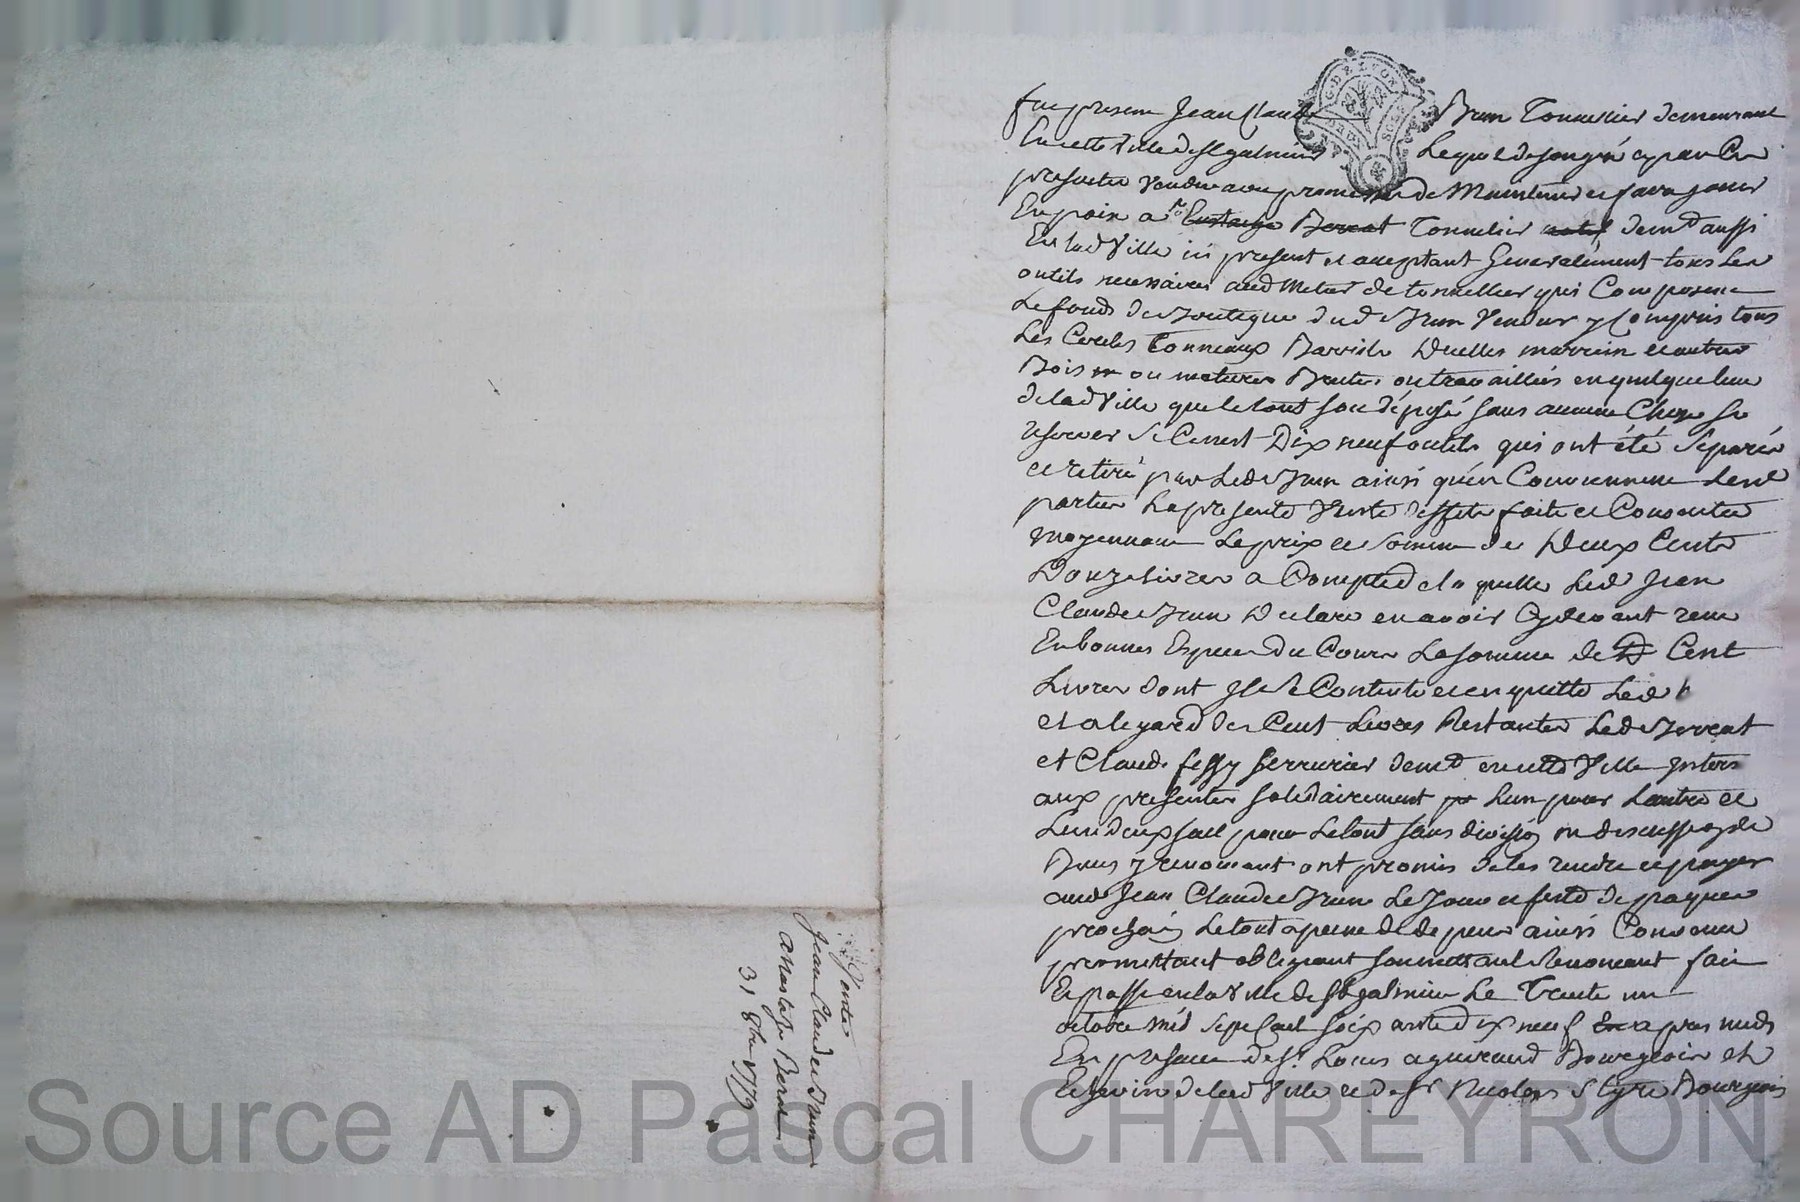 fut present Jean Claude Brun Tonnelier demeurant
En cette Ville de St galmier Lequel de son gré a par Ces
presentes Vendu avec promesse de Maintenir et faire jouir
En paix a Sr Eustache Berest Tonnelier natif demt aussi
En lad Ville ici present et acceptant Generalement tous Les
outils necessaires aud Metier de tonnellier qui Composent
Le fonds de Boutique dud Brun Vendeur y Compris tous
Les Cercles Tonneaux Barrils Duelles marrein et autres
Bois ou matieres Brutes ou travaillés en quelque lieu
de lad Ville que le tout soit déposé sans aucune Chose se
reserver Si Cenest Dix neuf outils qui ont été separés
et retiré par Led Brun ainsi qu'en Conviennent Lesd
parties La presente Vente faite et Consentie
moyennant Le prix et Somme de Deux Cents
Douze livres a Compte de la quelle Led Jean
Claude Brun Declare en avoir Cydevant reçu
En bonnes Especes du Cours La somme de Cent
Livres dont Il se Contente et en quitte Led
et a legard des Cent Livres Restantes Led Berrest
et Claude fessy serrurier demt en cette Ville
aux presentes solidairement Lun pour Lautre et
Lun deux seul pour Le tout sans division ni discussion de
Biens y renonceant ont promis de les rendre et payer
aud Jean Claude Brun Le Jour et feste de paques
prochain Le tout a peine de depens ainsi Convenu
promettant obligeant soumettant Renonceant fait
Et passé en la Ville de St galmier Le Trente un
octobre Mil Sept Cent soix ante dix neuf apres midy
En presence de Sr Louis aguiraud Bourgeois et
Echevin de lad Ville et de Sr Nicolas Bourgeois
Vente
Jean Claude Brun
anastase Berest
31 8bre 1779
Source AD Pascal CHAREYRON